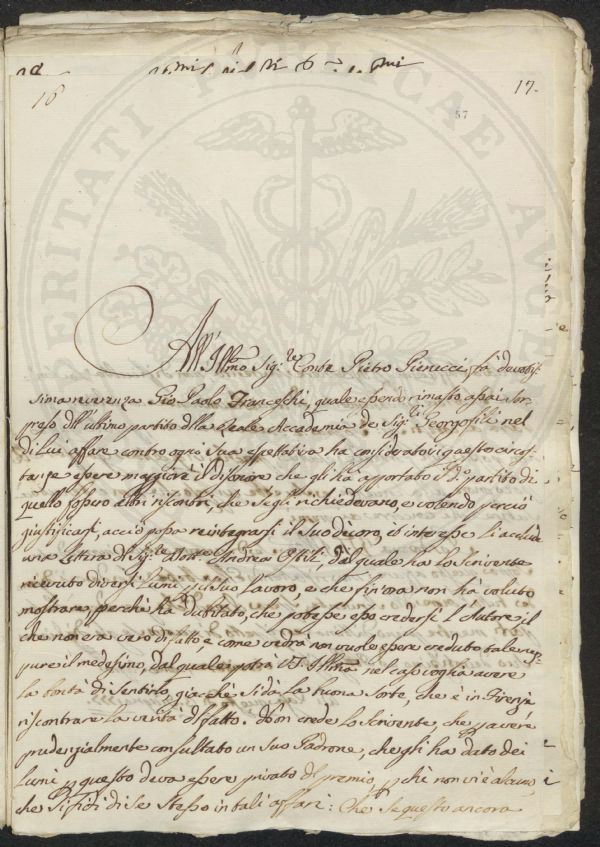 16
17.
57
PERITATI PUBLICAE AUGE
All'Illmo Sig.re Conte Pietro Pierucci, fà devotis
sima riverenza Gio Paolo Franceschi, quale essendo rimasto assai sor
preso dll'ultimo partito dlla Reale Accademia de Sig.ri Georgofili nel
di Lui affare contro ogni Sua espettativa ha considerato in questa circos
tanza essere maggiore il disonore che gli ha apportato il d.o partito di
quello fossero altri riscontri, che se gli richiedevano, e volendo perciò
giustificarsi, acciò possa reintegrarsi il Suo decoro, ed interesse Li acclude
una Lettera dl Sig.re Andrea dal quale ha lo Scrivente
ricevuto diversi Lumi il Suo Lavoro, e che fin'ora non hà voluto
mostrare, perchè ha dubitato, che potesse esso credersi L'Autore il
che non era vero di tutto, e come vedrà non vuole essere creduto tale nep
pure il medesimo, dal quale potrà V.S. Illma nel caso voglia avere
la bontà di Sentirlo, giachè Si dà la buona Sorte, che è in Firenze
riscontrare la verità dl fatto. Non crede lo Scrivente, che p avere
prudenzialmente consultato un Suo Padrone, che gli ha dato dei
Lumi p questo deva essere privato dl premio, p chè non vi è alcuno,
che Si fidi di Se Stesso in tali affari: Che Se questo ancora